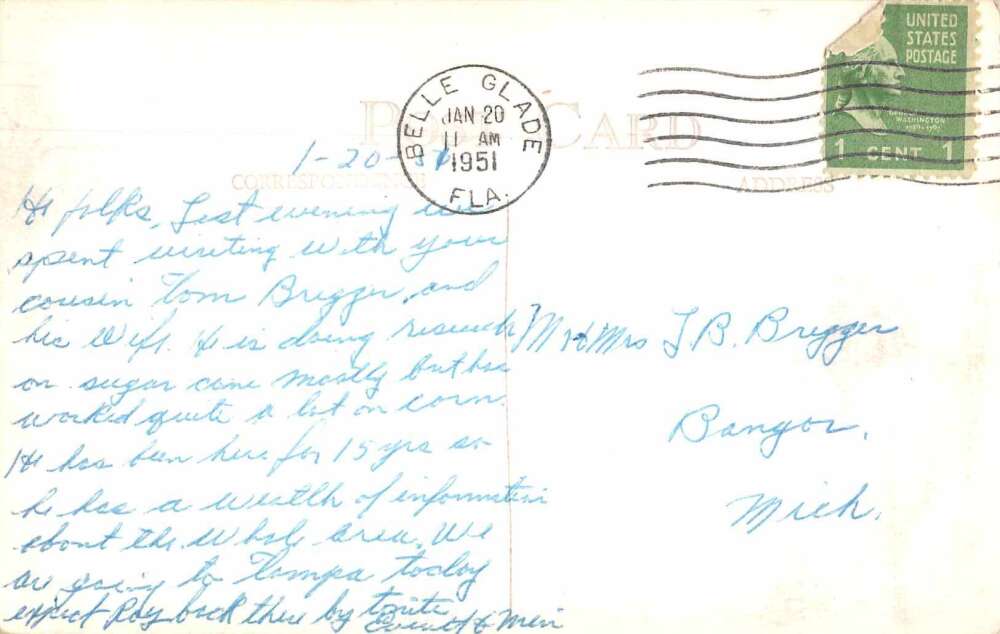 UNITED
STATES
POSTAGE
GEORGE
WASHINGTON
1 CENT 1
BELLE GLADE
JAN 20
11 AM
1951
FLA.
POST CARD
CORRESPONDENCE
ADDRESS
1-20-51
Hi folks, Last evening we
spent visiting with your
cousin Tom Bregger, and
his wife. He is doing research
on sugar cane mostly but has
worked quite a lot on corn.
He has been here for 15 yrs so
he has a wealth of information
about the whole area. We
are going to Tampa today
expect Roy back there by tonite
Everett &
Mr & Mrs J B. Bregger
Bangor,
Mich.